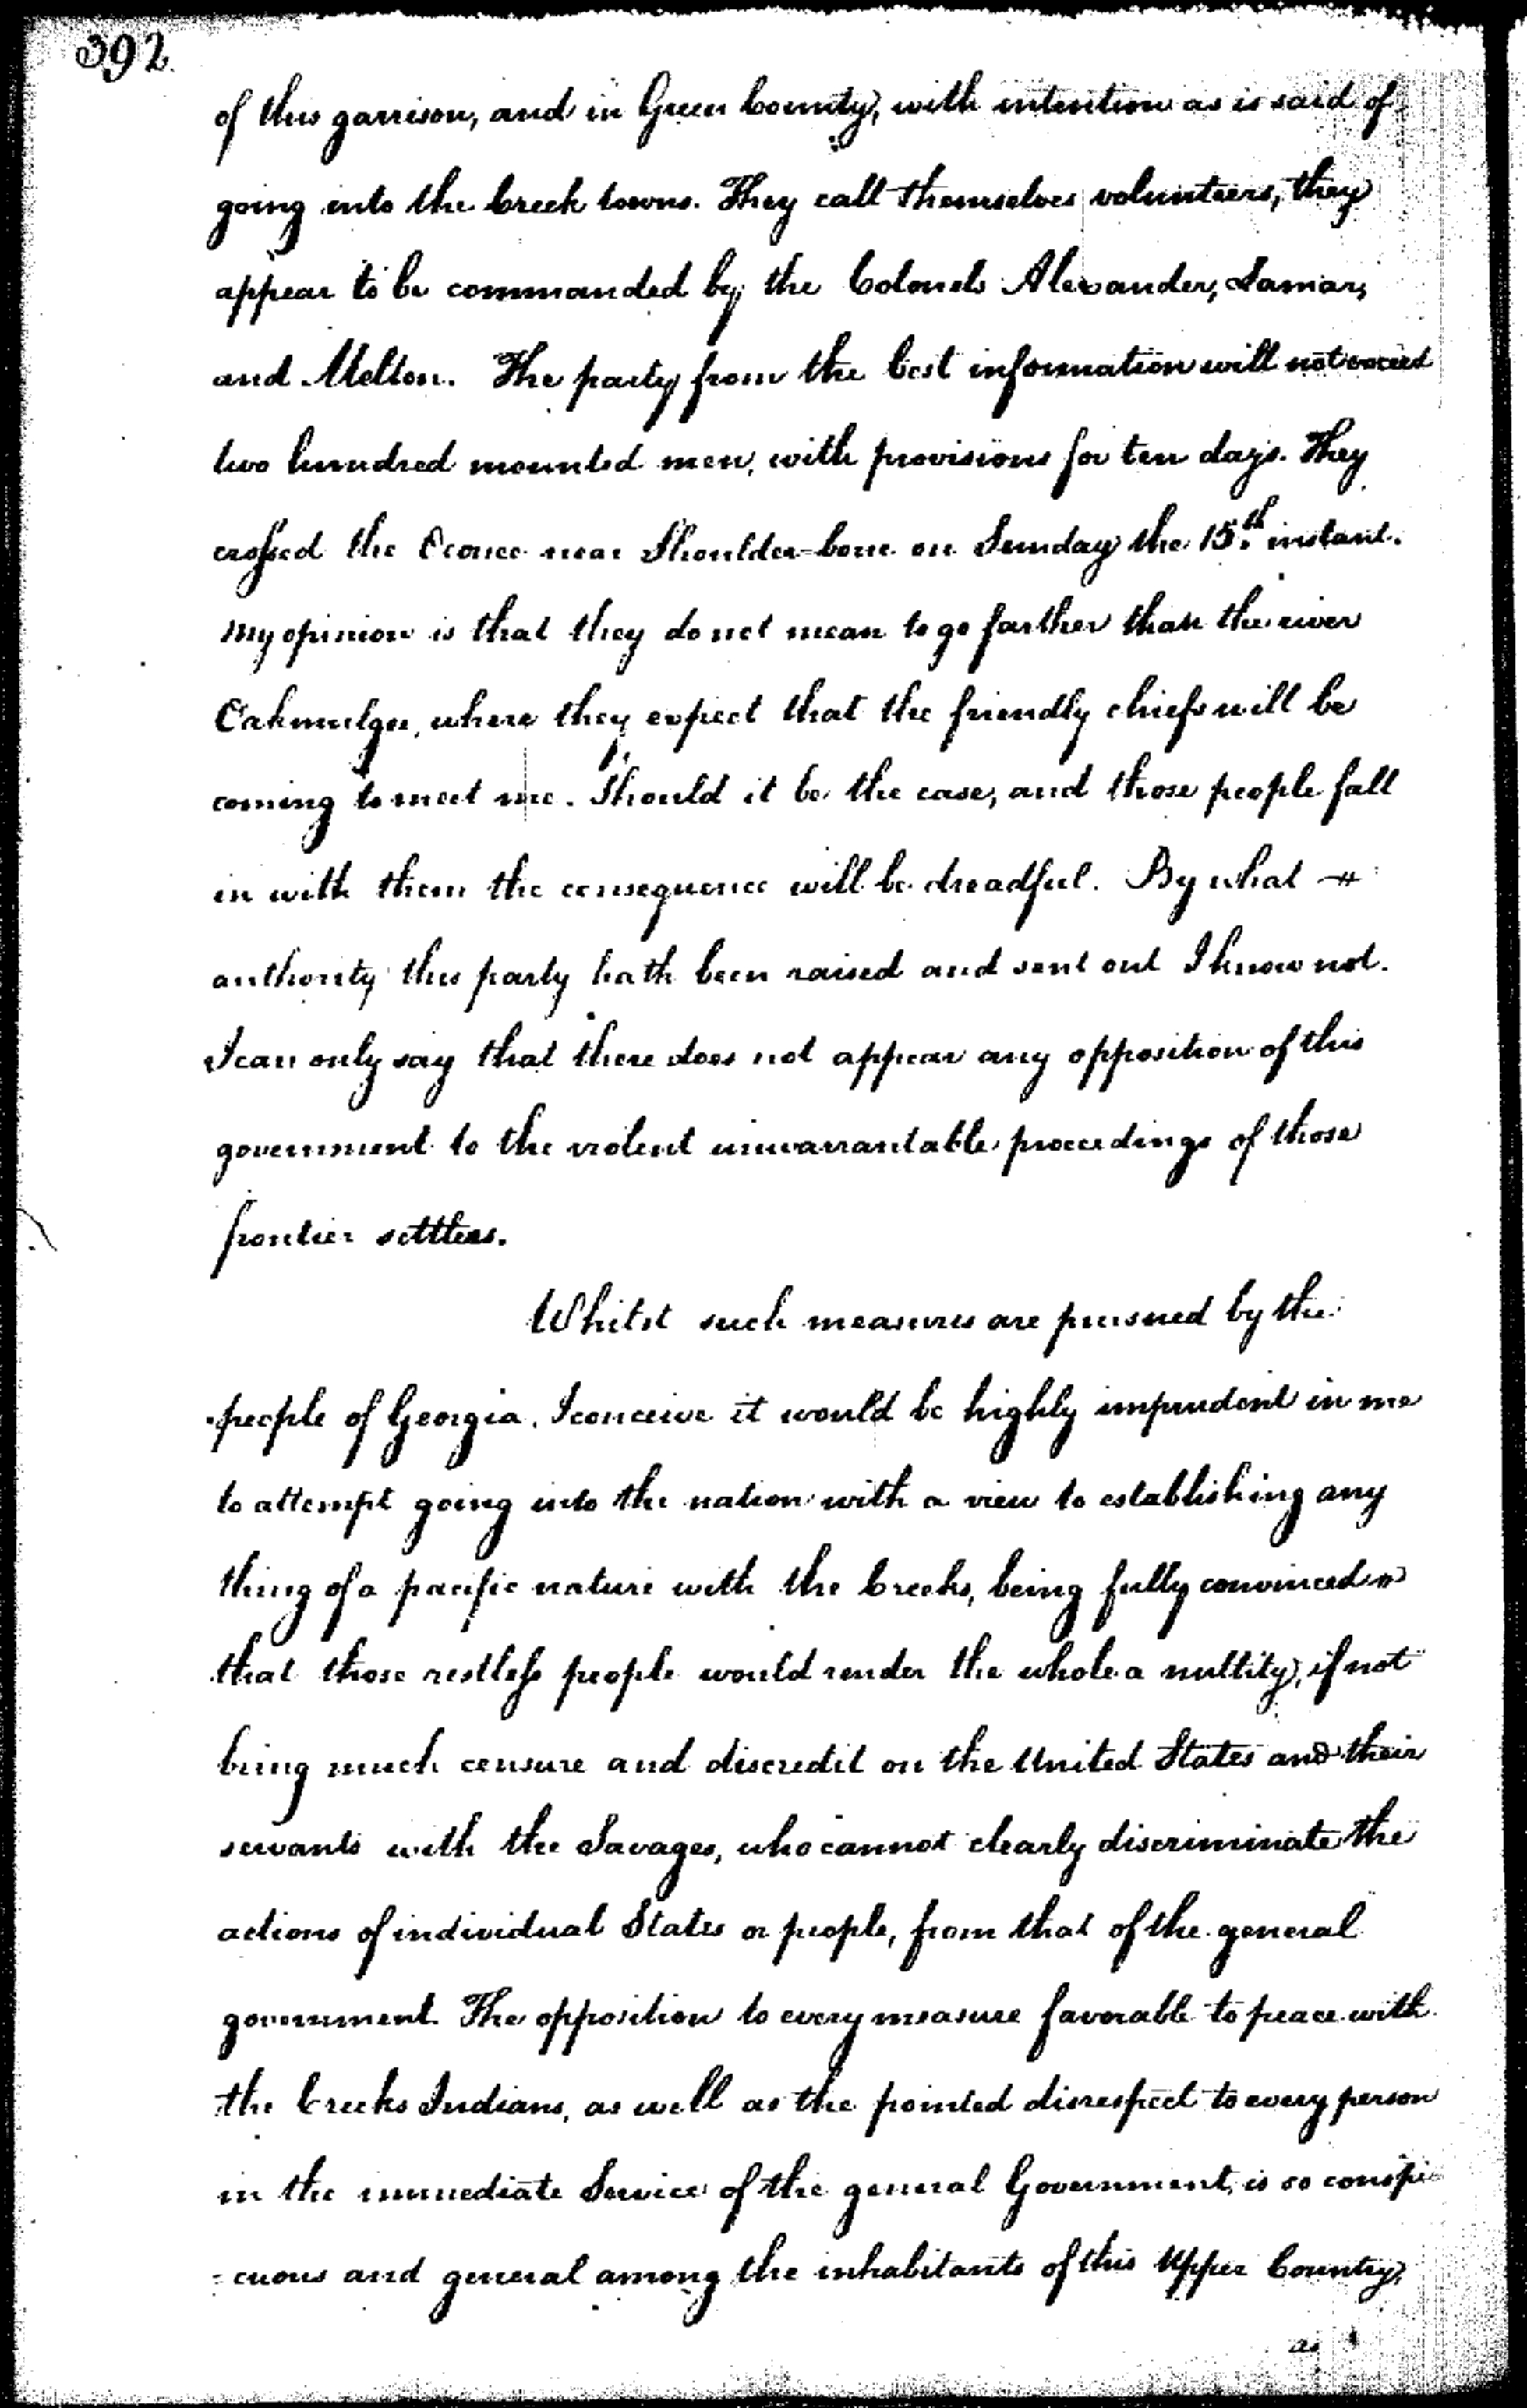 392
of this garrison, and in Green County, with intention as is said of
going into the Creek towns. They call themselves volunteers, they
appear to be commanded by the Colonels Alexander, Lamar,
and Melton. The party from the best information will not exceed
two hundred mounted men, with provisions for ten days. They
crossed the Oconee near Shoulder-bone on Sunday the 15th. instant.
My opinion is that they do not mean to go farther than the river
Oakmulgee, where they expect that the friendly chiefs will be
coming to meet me. Should it be the case, and those people fall
in with them the consequence will be dreadful. By what
authority this party hath been raised and sent out I know not.
I can only say that there does not appear any opposition of this
government to the violent unwarrantable proceedings of those
frontier settlers.
Whilst such measures are pursued by the
people of Georgia, I conceive it would be highly imprudent in me
to attempt going into the nation with a view to establishing any
thing of a pacific nature with the Creeks, being fully convinced
that those restless people would render the whole a nullity, if not
bring much censure and discredit on the United States and their
servants with the Savages, who cannot clearly discriminate the
actions of individual States or people, from that of the general
government. The opposition to every measure favorable to peace with
the Creeks Indians, as well as the pointed disrespect to every person
in the immediate Service of the general Government, is so conspi-
=cuous and general among the inhabitants of this Upper Country,
as